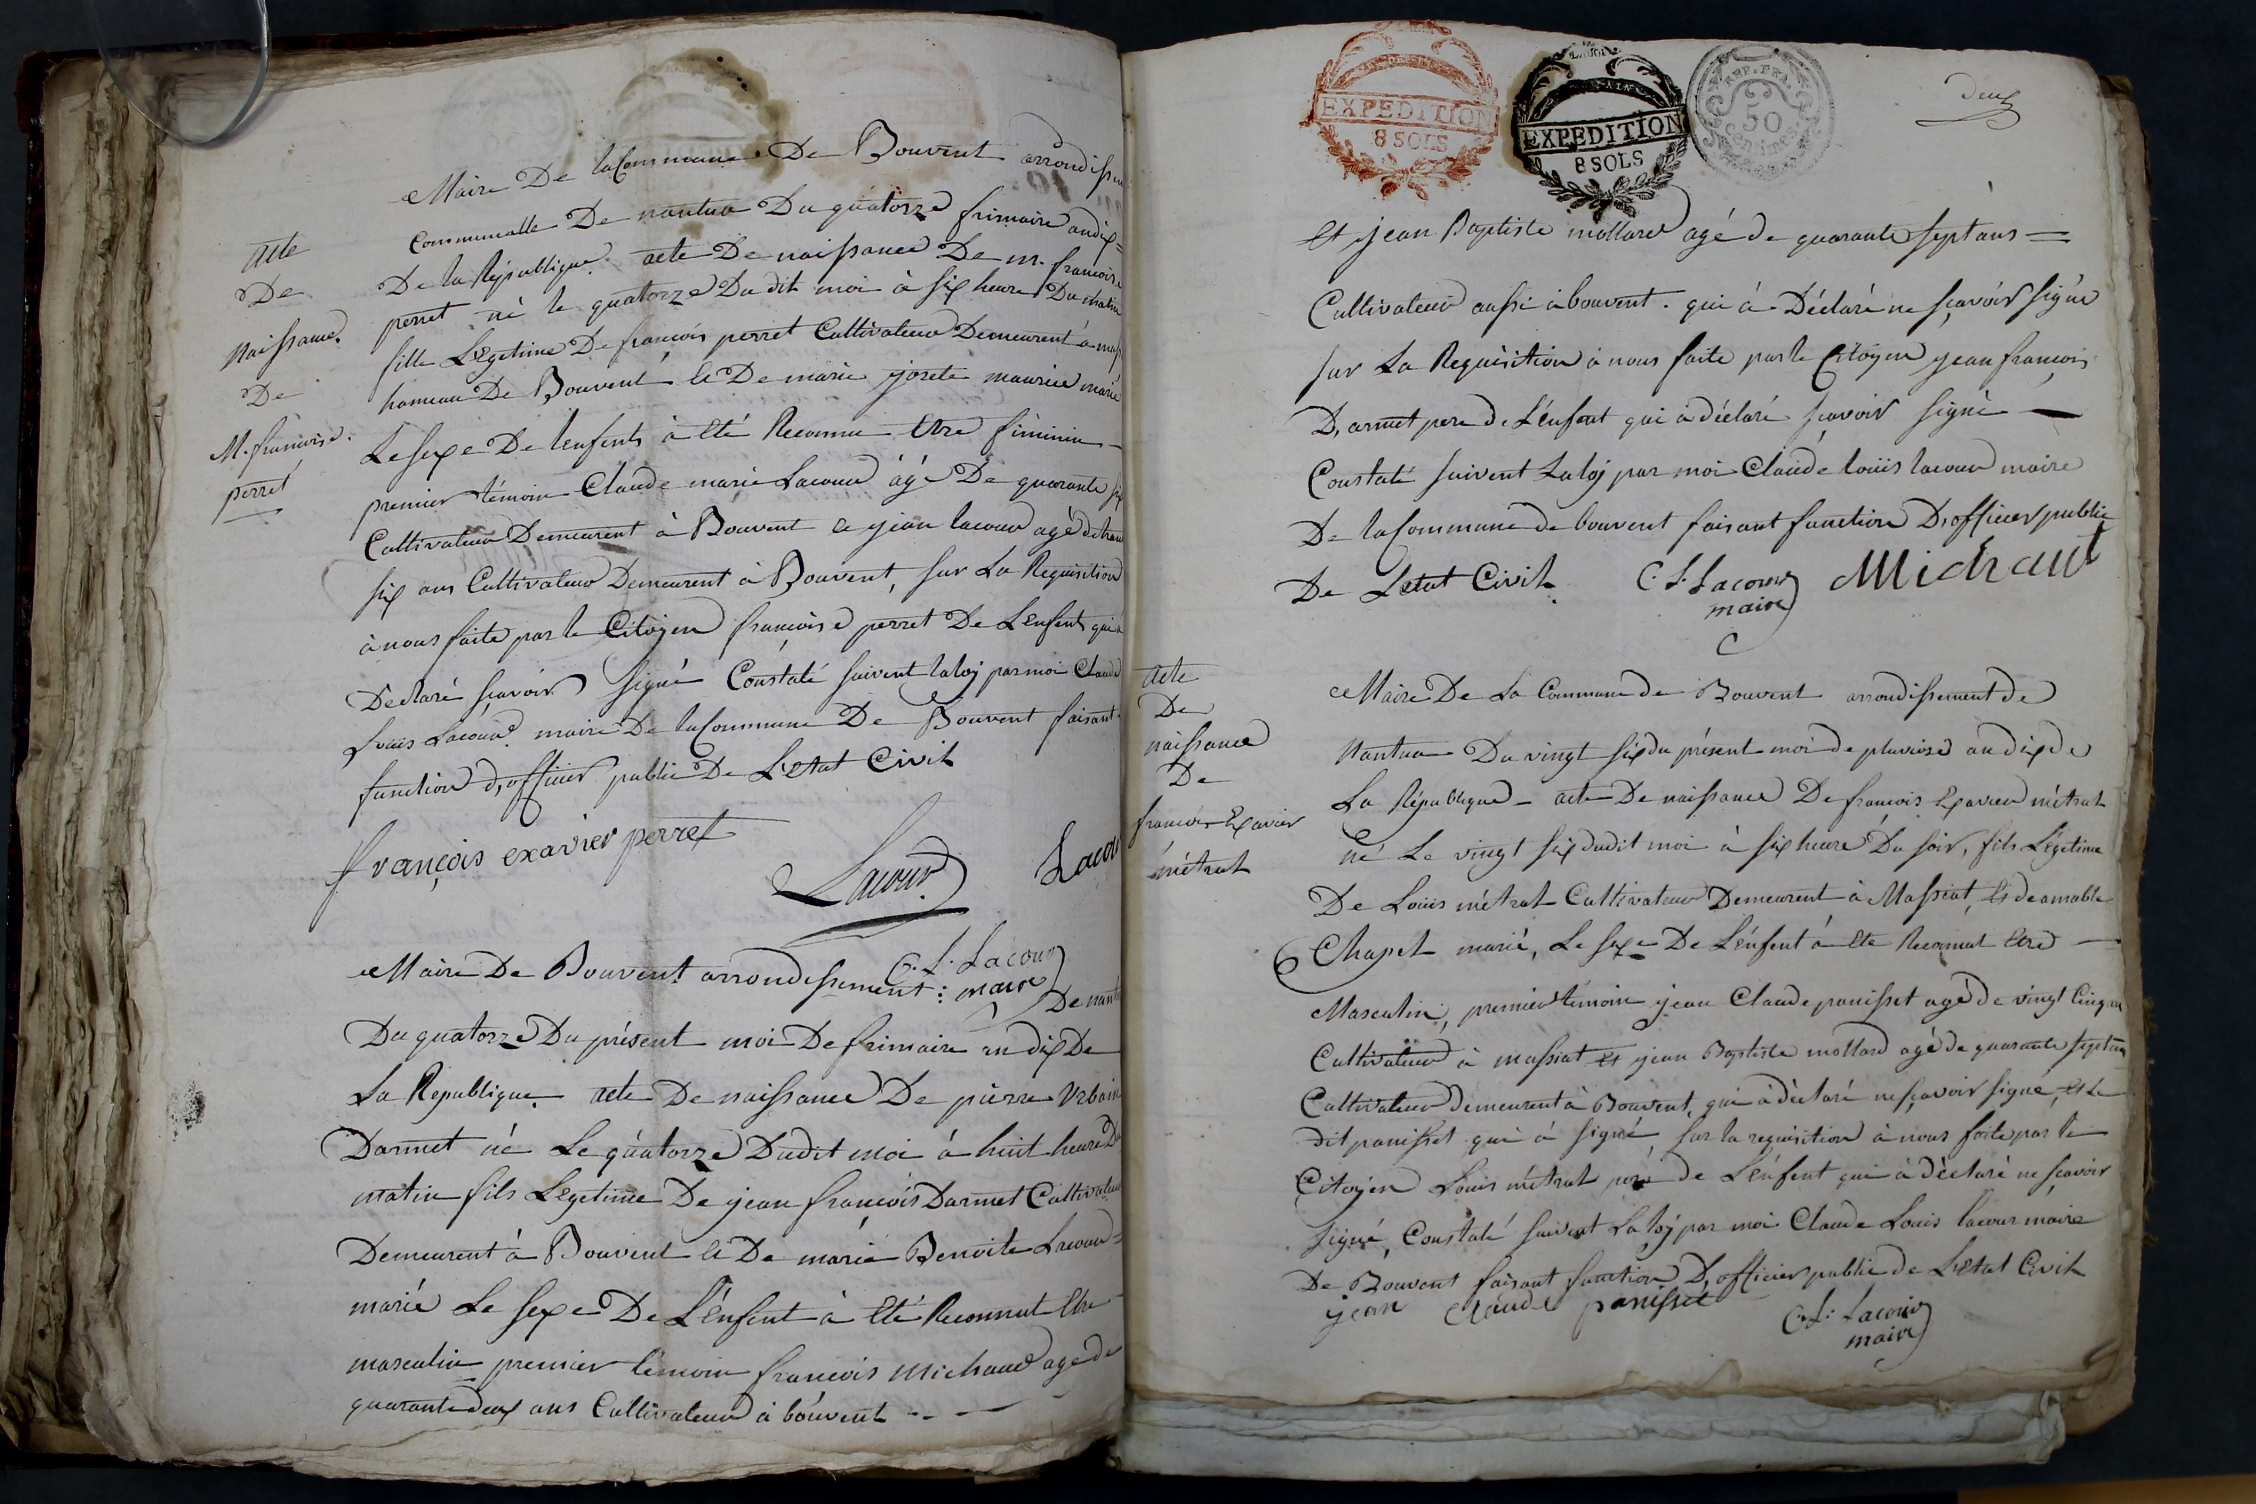 Maire De la Commune De Bouvent arrondissem
Communalle De nantua Du quatorze frimaire an dix =
De la République. acte De naissance De m. francoise
perret né le quatorze Du dit moi à six heure Du matin
fille Legetime De françois perret Cultivateur Demeurent à mass
hameau De Bouvent et De marie maurice marié
Le sexe De lenfents à été Reconnu Etre féminin
premier témoin Claude marie Lacour âgé De quarante six
Cultivateur Demeurent à Bouvent e jean lacour agé de
six ans Cultivateur Demeurent à Bouvent, sur La Requisition
à nous faite par le Citoyen françoise perret De L'enfents qui à
Déclaré sçavoir signé Constaté suivent la loj par moi Claude
Louis Lacour maire De la Commune De Bouvent faisant
function d'officier public De L'etat Civil
françois exavier perret
Lacour Lacou
C. L. Lacour
maire
acte
De
Naissance
De
M. francoise
perret
Maire De Bouvent arrondissement : De nant
Du quatorze Du présent moi De frimaire an dix De
La Republique. acte De naissance De pierre Urbain
Darmet né Le quatorze Dudit moi à huit heure Du
matin fils Legetime De jean françois Darmet Cultivateur
Demeurent à Bouvent et De marie Benoite Lacour =
marié Le sexe De L'énfent à été Reconnut Etre
masculin premier témoin francois Michaud age de
quarante deux ans Cultivateur à bouvent
EXPEDITION
8 SOLS
EXPEDITION
8 SOLS
REP. FRA.
50
CENTIMES
deux
Et jean Baptiste mollard agé de quarante sept ans =
Cultivateur aussi à bouvent. qui à Déclaré ne sçavoir signé
sur La Requisition à nous faite par le Citoyen jean francois
D'armet pere de L'énfent qui à déclaré sçavoir signé
Constaté suivent La loj par moi Claude loüis lacour maire
De la Commune de bouvent faisant function D'officier public
De L'etat Civil C. L. Lacour Michaut
maire
acte
De
naissance
De
francois Exavier
métrat
Maire De La Commune de Bouvent arrondissement de
Nantua Du vingt six du présent moi de pluviose an dix de
La République acte De naissance De francois Exavier métrat
né Le vingt six dudit moi à six heure Du soir, fils Légetime
De Louis métrat Cultivateur Demeurent à Massiat, et de amable
Chapel marié, Le sexe De L'énfent à ete Reconnut Etre
Masculin, premier témoin jean Claude panisset agé de vingt Cinq an
Cultivateur à massiat et jean Baptiste mollard agé de quarante sept an
Cultivateur demeurent à Bouvent, qui à déclaré ne sçavoir signé, et Le
dit panisset qui à signé, sur la requisition à nous faite par le
Citoyen Louis métrat péré de L'énfent qui à déclaré ne sçavoir
signé, Constaté suivent La loj par moi Claude Louis lacour maire
De Bouvent faisant function D'officier public de L'etat Civil
jean claude panisset C. L. Lacour
maire